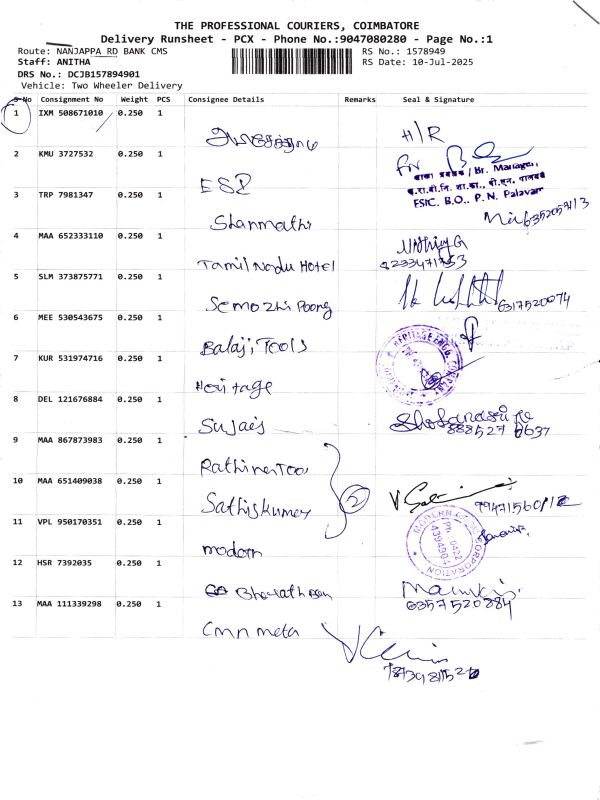 THE PROFESSIONAL COURIERS, COIMBATORE
Delivery Runsheet - PCX - Phone No.:9047080280 - Page No.:1
Route: NANJAPPA RD BANK CMS RS No.: 1578949
Staff: ANITHA RS Date: 10-Jul-2025
DRS No.: DCJB157894901
Vehicle: Two Wheeler Delivery
S No Consignment No Weight PCS Consignee Details Remarks Seal & Signature
1 IXM 508671010 0.250 1
H/R
2 KMU 3727532 0.250 1
शाखा प्रबंधक / Br. Manager,
ESIC. B.O., P. N. Palavar
ESI
3 TRP 7981347 0.250 1
Shanmathi
4 MAA 652333110 0.250 1
Tamil Nadu Hotel
8233471753
5 SLM 373875771 0.250 1
Semozhi Poong
6317520074
6 MEE 530543675 0.250 1
Balaji Tools
7 KUR 531974716 0.250 1
HERITAGE ENGG.
Heritage
8 DEL 121676884 0.250 1
Sujais
9 MAA 867873983 0.250 1
Rathina Tool
10 MAA 651409038 0.250 1
Sathiskumar
2
11 VPL 950170351 0.250 1
MODERN CORPORATION
modern
12 HSR 7392035 0.250 1
Bharath
6357520384
13 MAA 111339298 0.250 1
Cmn meta